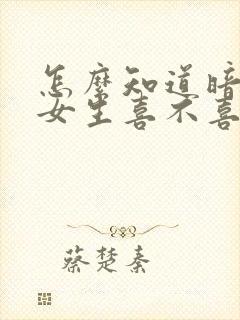 怎麼知道暗
女生喜不喜
蔡楚秦